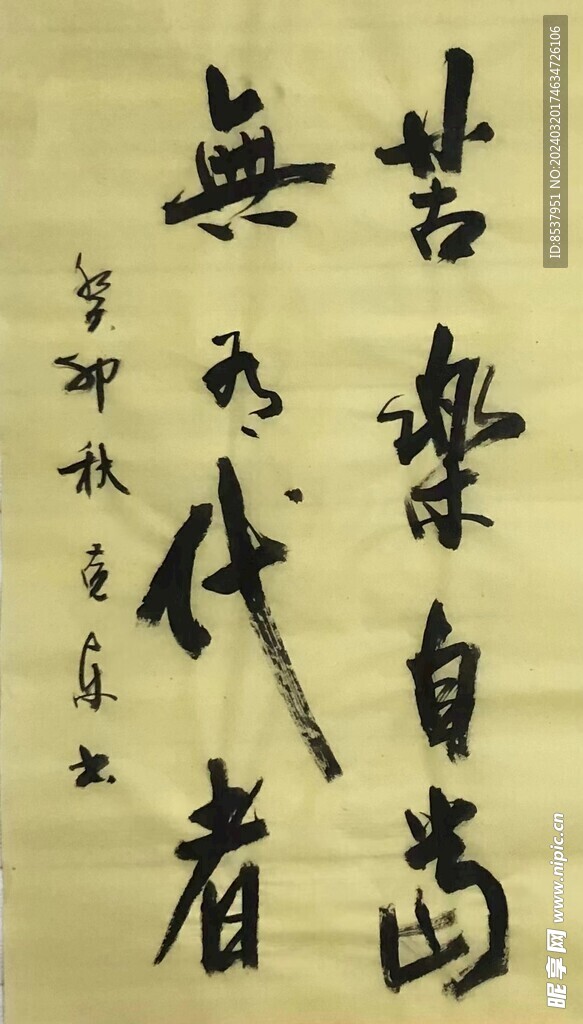 苦樂自當
無有代者
癸卯秋 书
ID:8537951 NO:20240320174634726106
昵享网 www.nipic.cn